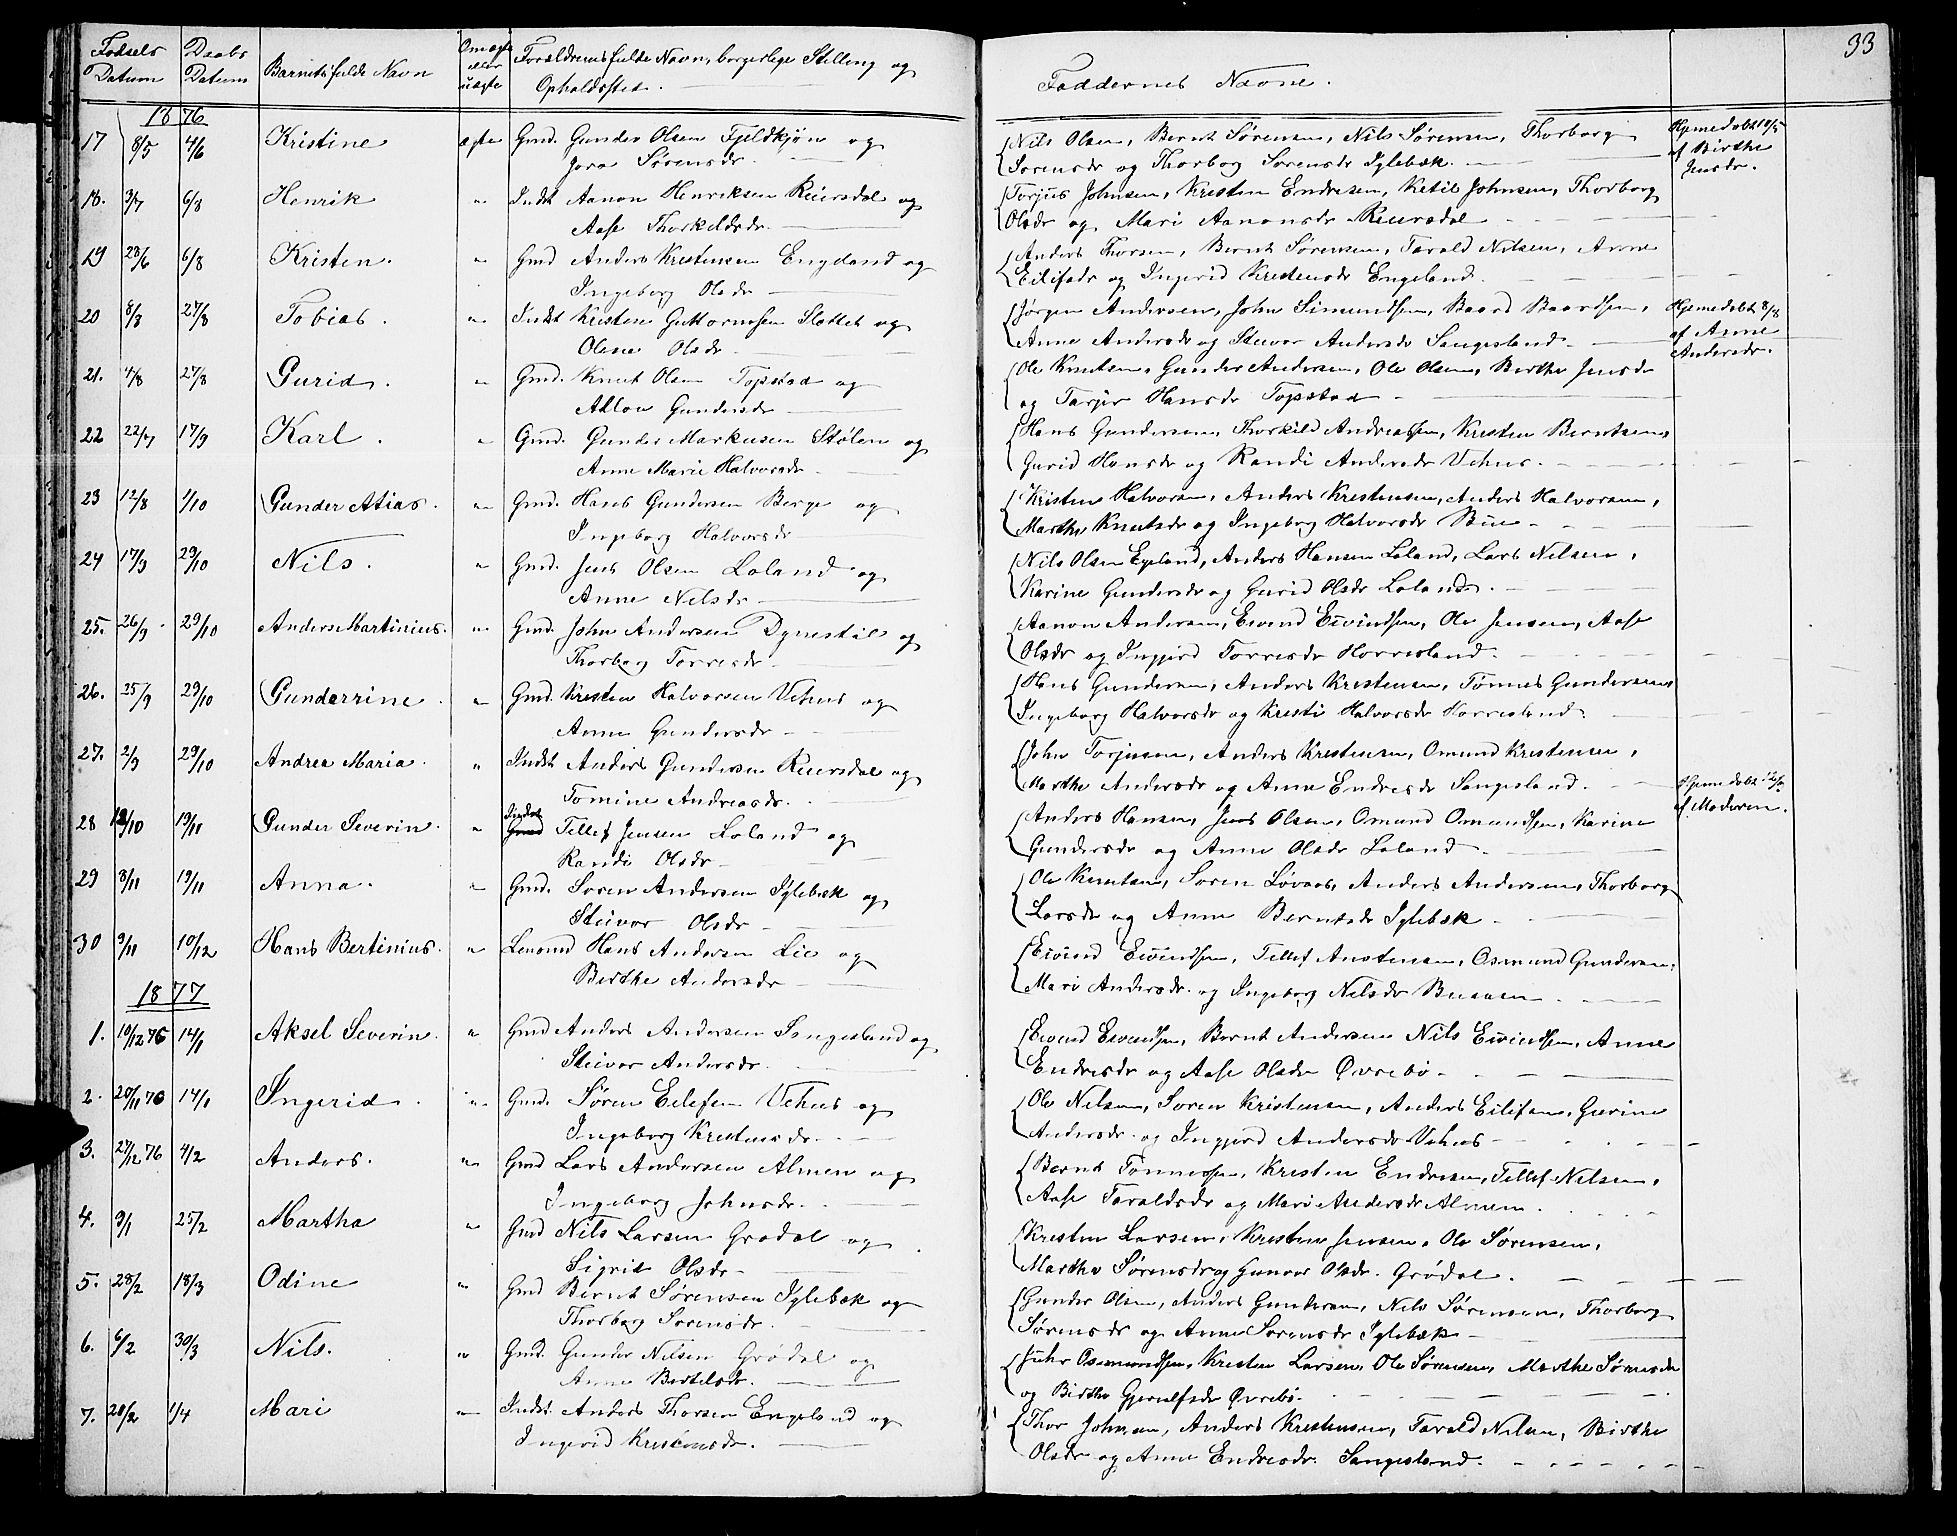 33
Fødsels Datum
Daabs Datum
Barnets fulde Navn
Om ægte eller uægte
Forældrenes fulde Navn, borgerlige Stilling og Opholdssted.
Faddernes Navne.
1876
17 8/5 4/6 Kristine ægte Gmd. Gunder Olsen Fjeldkjøn og
Jora Sørensdr.
Nils Olsen, Bernt Sørensen, Nils Sørensen, Thorborg
Sørensdr og Thorborg Sørensdr Iglebæk.
Hjemedøbt 10/5
af Birthe
Jensdr.
18. 3/7 6/8 Henrik " Indst Aanon Henriksen Reiersdal og
Aase Thorkeldsdr.
Torjus Johnsen, Kristen Endresen, Ketil Johnsen, Thorborg
Olsdr og Mari Aanonsdr Reiersdal
19 28/6 6/8 Kristen. " Gmd Anders Kristensen Engeland og
Ingeborg Olsdr
Anders Thorsen, Bernt Sørensen, Tarald Nilsen, Anne
Eilifsdr og Ingerid Kristensdr Engeland.
20 8/3 27/8 Tobias. " Indst Kristen Guttormsen Slottet og
Olene Olsdr
Jørgen Andersen, John Simundsen, Baard Baardsen,
Anne Andersdr og Steivor Andersdr Sangesland.
Hjemedøbt 8/8
af Anne
Andersdr.
21. 4/8 27/8 Gurid. " Gmd. Knut Olsen Topstad og
Aslou Gundersdr
Ole Knutsen, Gunder Andersen, Ole Olsen, Birthe Jensdr
og Tarjer Hansdr Topstad
22 22/7 17/9 Karl. " Gmd. Gunder Markusen Stølen og
Anne Marie Halvorsdr
Hans Gundersen, Thorkild Andreassen, Kristen Berntsen,
Gurid Hansdr og Randi Andersdr Vehus.
23 12/8 1/10 Gunder Atias. " Gmd. Hans Gundersen Berge og
Ingeborg Halvorsdr
Kristen Halvorsen, Anders Kristensen, Anders Halvorsen,
Marthe Knutsdr og Ingeborg Halvorsdr Bue
24 17/9 29/10 Nils. " Gmd. Jens Olsen Loland og
Anne Nilsdr
Nils Olsen Egeland, Anders Hansen Loland, Lars Nilsen,
Karine Gundersdr og Gurid Olsdr Loland.
25. 26/9 29/10 Anders Martinius. " Gmd. John Andersen Dynestøl og
Thorborg Torresdr
Aanon Andersen, Eivind Eivindsen, Ole Jensen, Aase
Olsdr og Ingjerd Torresdr Horrisland.
26. 25/9 29/10 Gunderrine " Gmd. Kristen Halvorsen Vehus og
Anne Gundersdr
Hans Gundersen, Anders Kristensen, Tomes Gundersen
Ingeborg Halvorsdr og Kristi Halvorsdr Horrisland.
27. 2/9 29/10 Andrea Maria. " Indst Anders Gundersen Reiersdal og
Tomine Andreasdr.
John Torjusen, Anders Kristensen, Omund Kristensen,
Marthe Andersdr og Anne Endresdr Sangesland.
28 12/10 19/11 Gunder Severin. " Indst Tellef Jensen Loland og
Randi Olsdr
Anders Hansen, Jens Olsen, Omund Omundsen, Karine
Gundersdr og Anne Olsdr Loland
Hjemedøbt
af Moderen.
29 8/11 19/11 Anna. " Gmd. Søren Andersen Iglebæk og
Steivor Olsdr
Ole Knutsen, Søren Løvaas, Anders Andersen, Thorborg
Larsdr og Anne Berntsdr Iglebæk
30 9/11 10/12 Hans Bertinius. " Lensmd Hans Andersen Lie og
Berthe Andersdr
Eivind Eivindsen, Tellef Anstensen, Osmund Gundersen,
Mari Andersdr. og Ingeborg Nilsdr
1877
1. 10/12 76 14/1 Aksel Severin. " Gmd Anders Andersen Songesland og
Steivor Andersdr.
Eivind Eivindsen, Bernt Andersen Nils Eivindsen, Anne
Endresdr og Aase Olsdr Øvrebø
2. 20/11 76 14/1 Ingerid. " Gmd. Søren Eilefsen Vehus og
Ingeborg Kristensdr.
Ole Nilsen, Søren Kristensen, Anders Eilifsen, Gurine
Andersdr. og Ingjerd Andersdr Vehus
3. 27/12 76 4/2 Anders. " Gmd Lars Andersen Almen og
Ingeborg Johnsdr.
Bernt Tønnessen, Kristen Endresen, Tellef Nilsen,
Aase Taraldsdr og Mari Andersdr Almen.
4. 9/1 25/2 Martha " Gmd Nils Larsen Grødal og
Sigrid Olsdr
Kristen Larsen, Kristen Jensen, Ole Sørensen,
Marthe Sørensdr og Gunvor Olsdr. Grødal.
5. 28/2 18/3 Odine " Gmd Bernt Sørensen Iglebæk og
Thorborg Sørensdr.
Gunder Olsen, Anders Gundersen, Nils Sørensen, Thorborg
Sørensdr og Anne Sørensdr Iglebæk
6. 6/2 30/3 Nils. " Gmd. Gunder Nilsen Grødal og
Anne Bertelsdr.
Osmundsen, Kristen Larsen, Ole Sørensen, Marthe Sørensdr
og Birthe Gjerulfsdr Øvrebø.
7. 20/2 1/4 Mari " Indst Anders Thorsen Engeland og
Ingerid Kristensdr.
Thor Johnsen, Anders Kristensen, Tarald Nilsen, Birthe
Olsdr og Anne Endresdr. Sangesland.